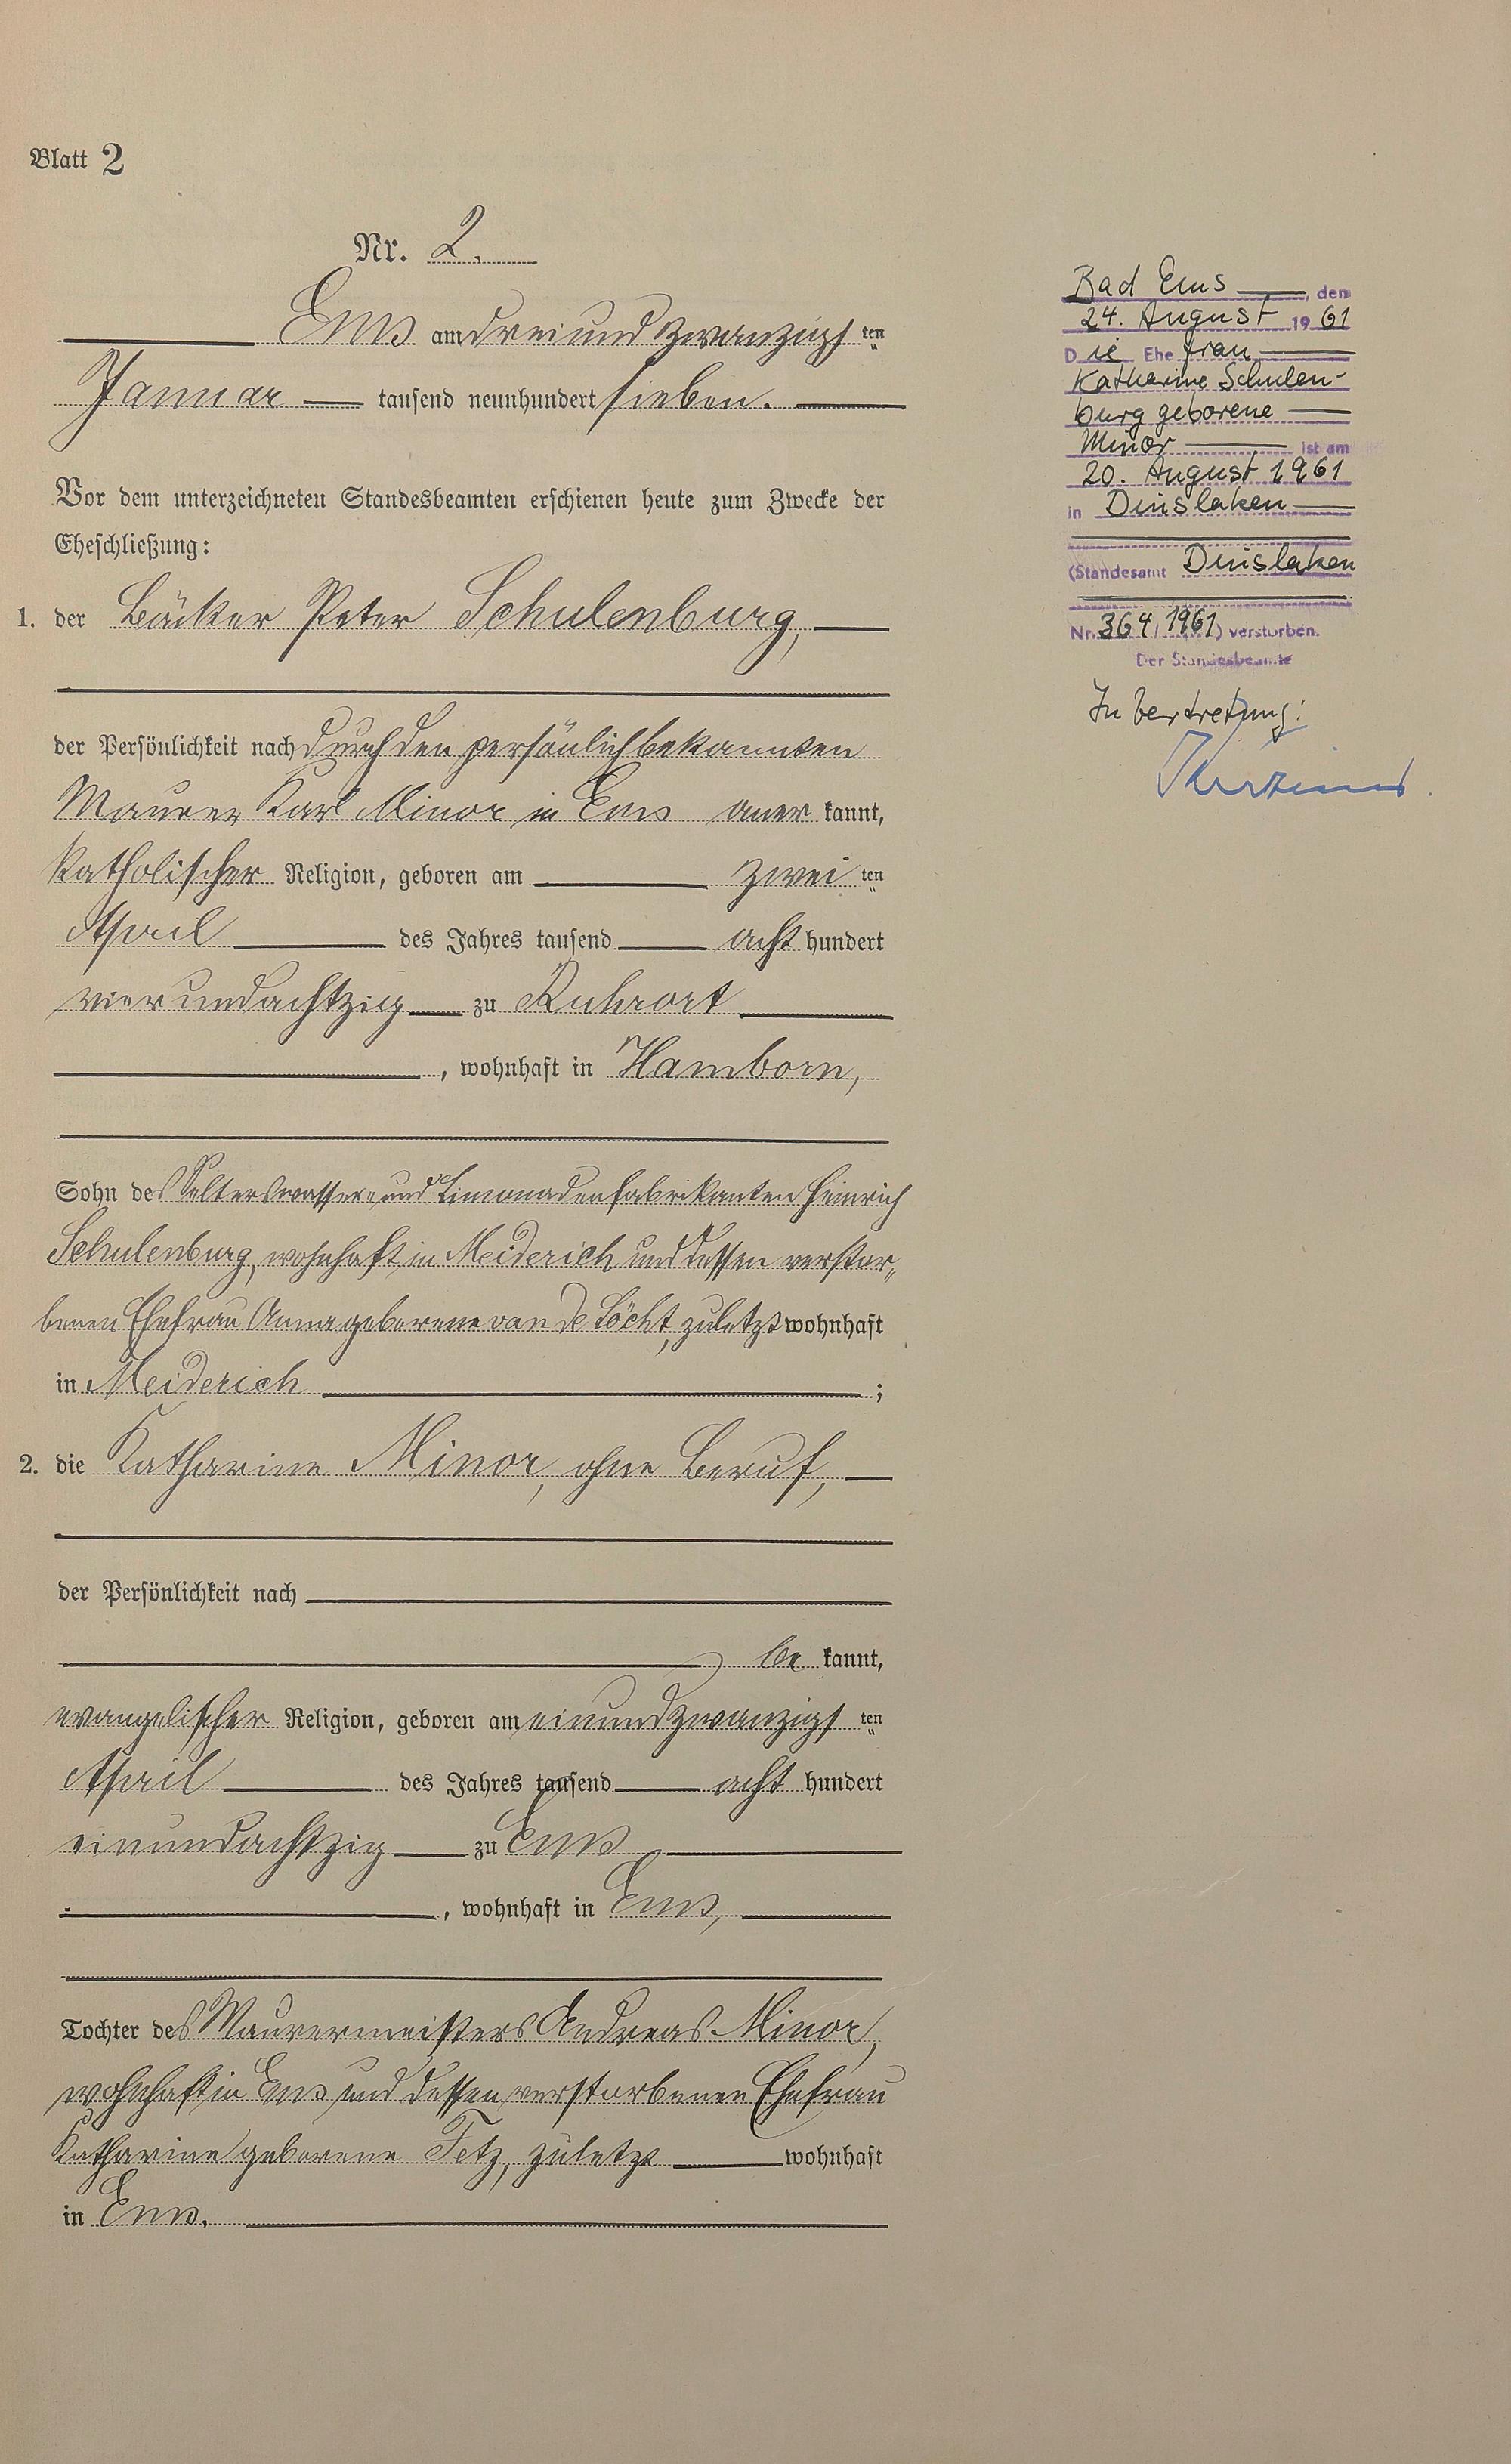 Blatt 2
Nr. 2.
Ems am dreiundzwanzigsten
Januar tausend neunhundert sieben.
Vor dem unterzeichneten Standesbeamten erschienen heute zum Zwecke der
Eheschließung:
1. der Bäcker Peter Schulenburg,
der Persönlichkeit nach durch den persönlich bekannten
Maurer Karl Minor in Ems anerkannt,
katholischer Religion, geboren am zweiten
April des Jahres tausend acht hundert
vierundachtzig zu Ruhrort
, wohnhaft in Hamborn,
Sohn des Selterswasser- und Limonadenfabrikanten Heinrich
Schulenburg, wohnhaft in Meiderich und dessen verstor-
benen Ehefrau Anna geborene van de Löcht, zuletzt wohnhaft
in Meiderich ;
2. die Katharine Minor, ohne Beruf,
der Persönlichkeit nach
be kannt,
evangelischer Religion, geboren am einundzwanzigsten
April des Jahres tausend acht hundert
einundachtzig zu Ems
, wohnhaft in Ems,
Tochter des Maurermeisters Andreas Minor,
wohnhaft in Ems und dessen verstorbenen Ehefrau
Katharine geborene Fetz, zuletzt wohnhaft
in Ems.
Bad Ems, den
24. August 1961
Die Ehefrau
Katharine Schulen-
burg geborene
Minor ist am
20. August 1961
in Dinslaken
(Standesamt Dinslaken
Nr. 364/1961) verstorben.
Der Standesbeamte
In Vertretung: